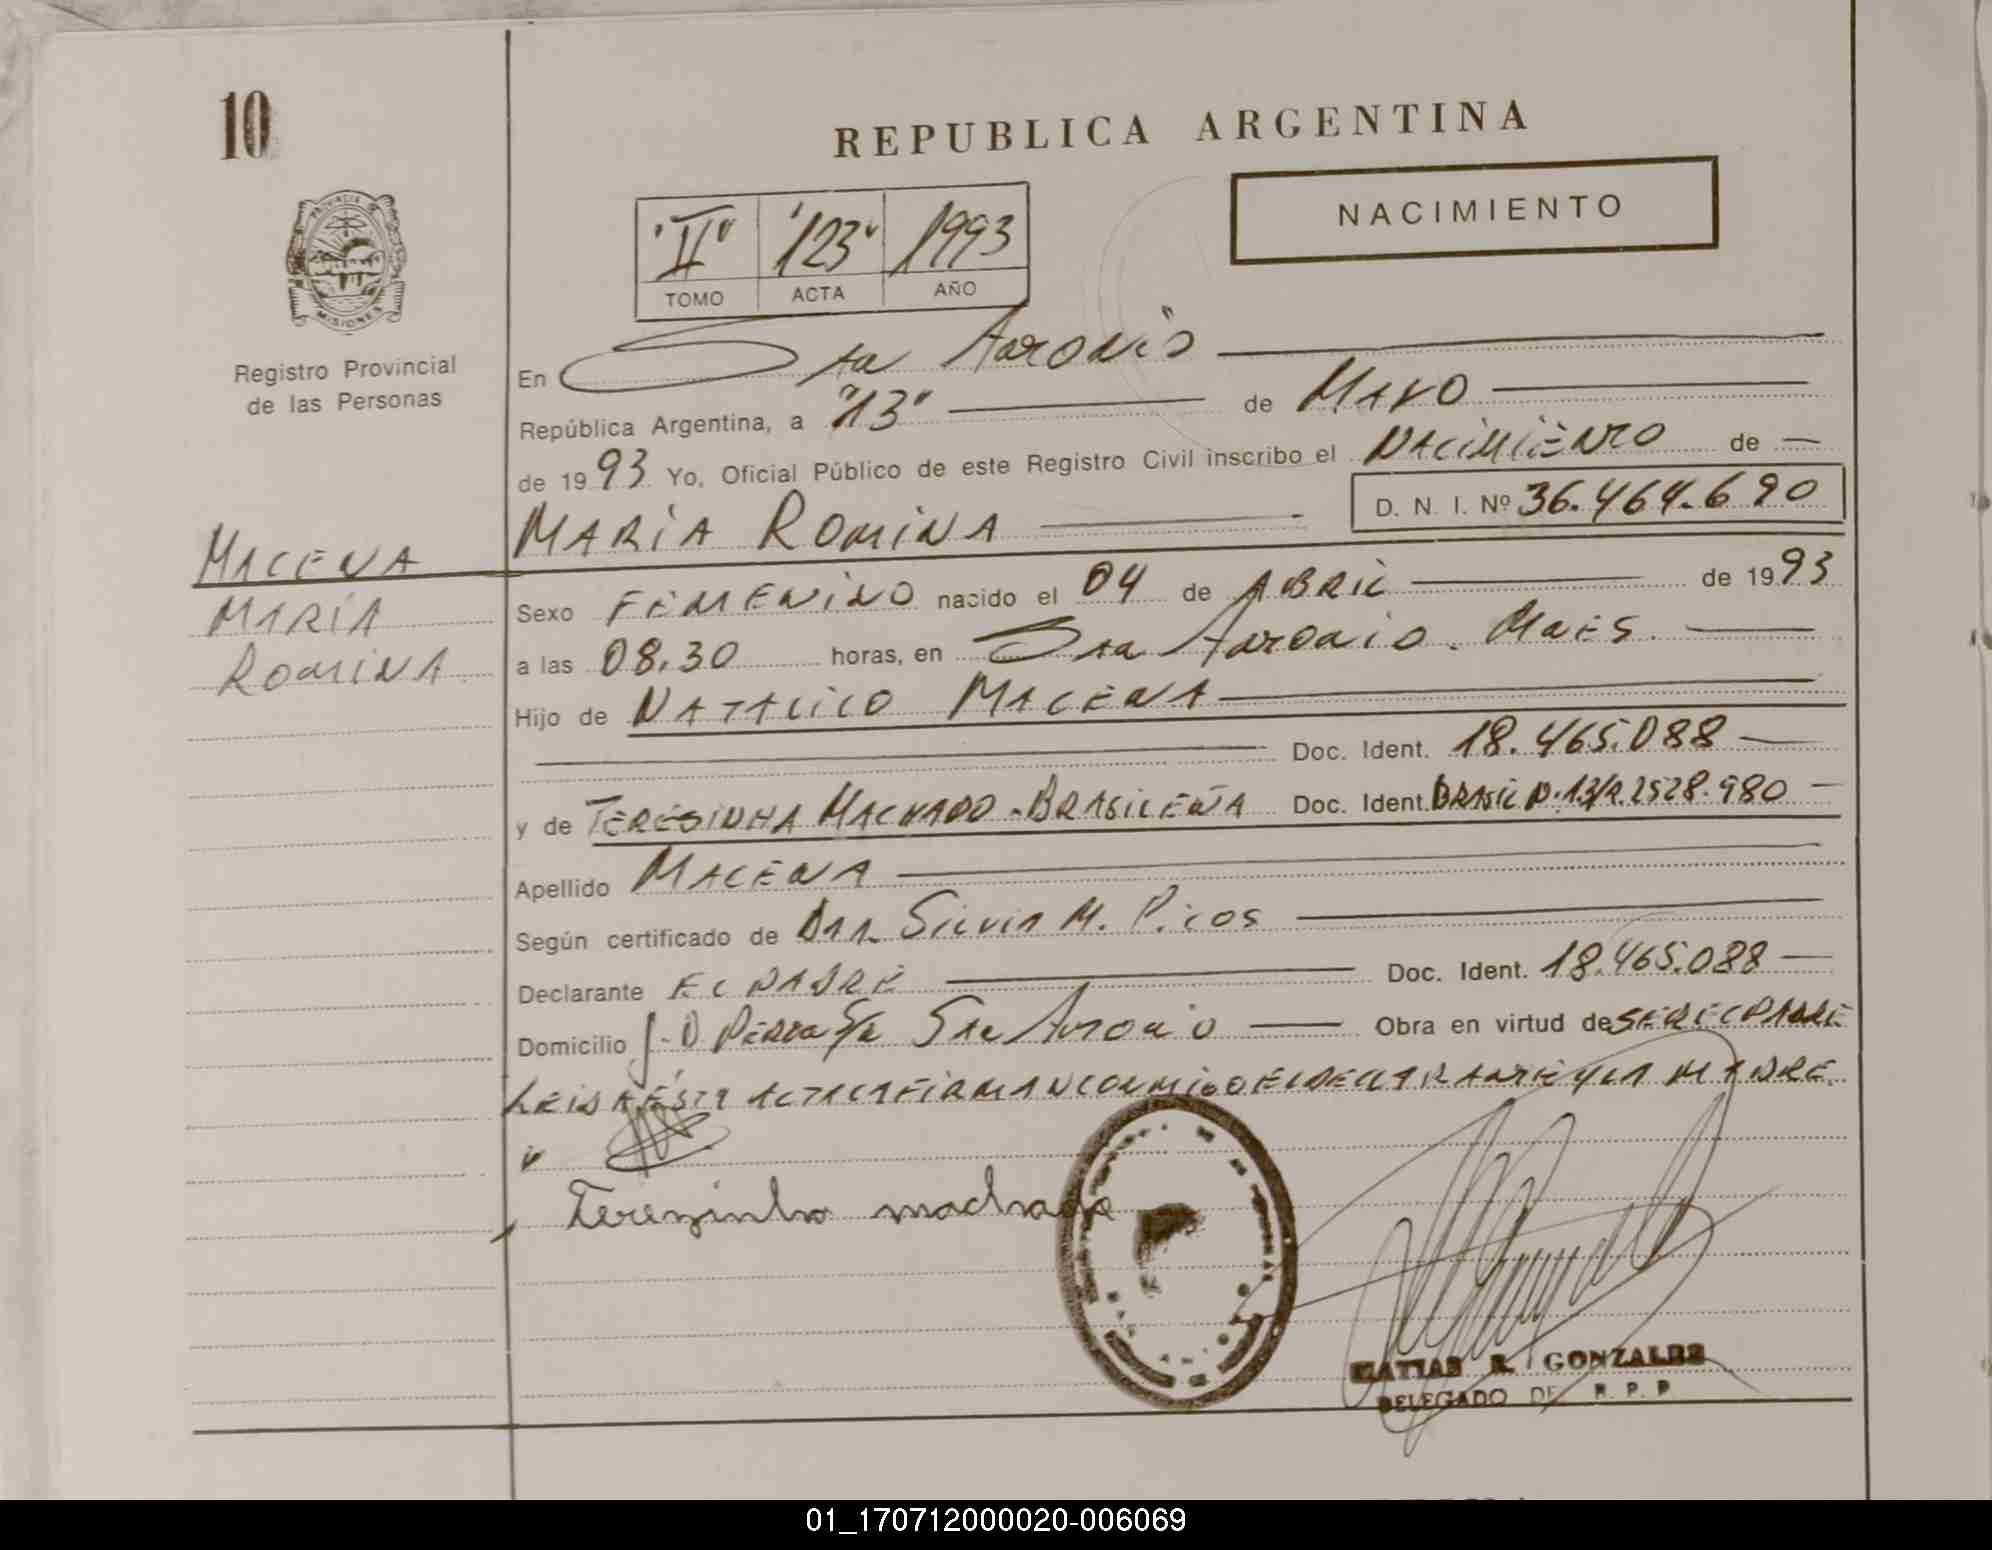 10
REPUBLICA ARGENTINA
NACIMIENTO
"II" "123" 1993
TOMO ACTA AÑO
PROVINCIA DE
MISIONES
Registro Provincial
de las Personas
En San Antonio
República Argentina, a "13" de MAYO
de 1993 Yo, Oficial Público de este Registro Civil inscribo el NACIMIENTO de
MARIA ROMINA D. N. I. Nº 36.464.690
MACENA
MARIA
ROMINA
Sexo FEMENINO nacido el 04 de ABRIL de 1993
a las 08.30 horas, en San Antonio. Mnes.
Hijo de NATALICO MACENA
Doc. Ident. 18.465.088
y de TERESINHA MACHADO - BRASILEÑA Doc. Ident. BRASIL N. 13/R.2528.980
Apellido MACENA
Según certificado de DRA. SILVIA M. Picos
Declarante EL PADRE Doc. Ident. 18.465.088
Domicilio San Antonio Obra en virtud de SER EL PADRE
LEIDA ESTA ACTA LA FIRMAN CONMIGO EL DECLARANTE Y LA MADRE.
Terezinha machado
MATIAS R. GONZALEZ
DELEGADO DE R. P. P
01_170712000020-006069